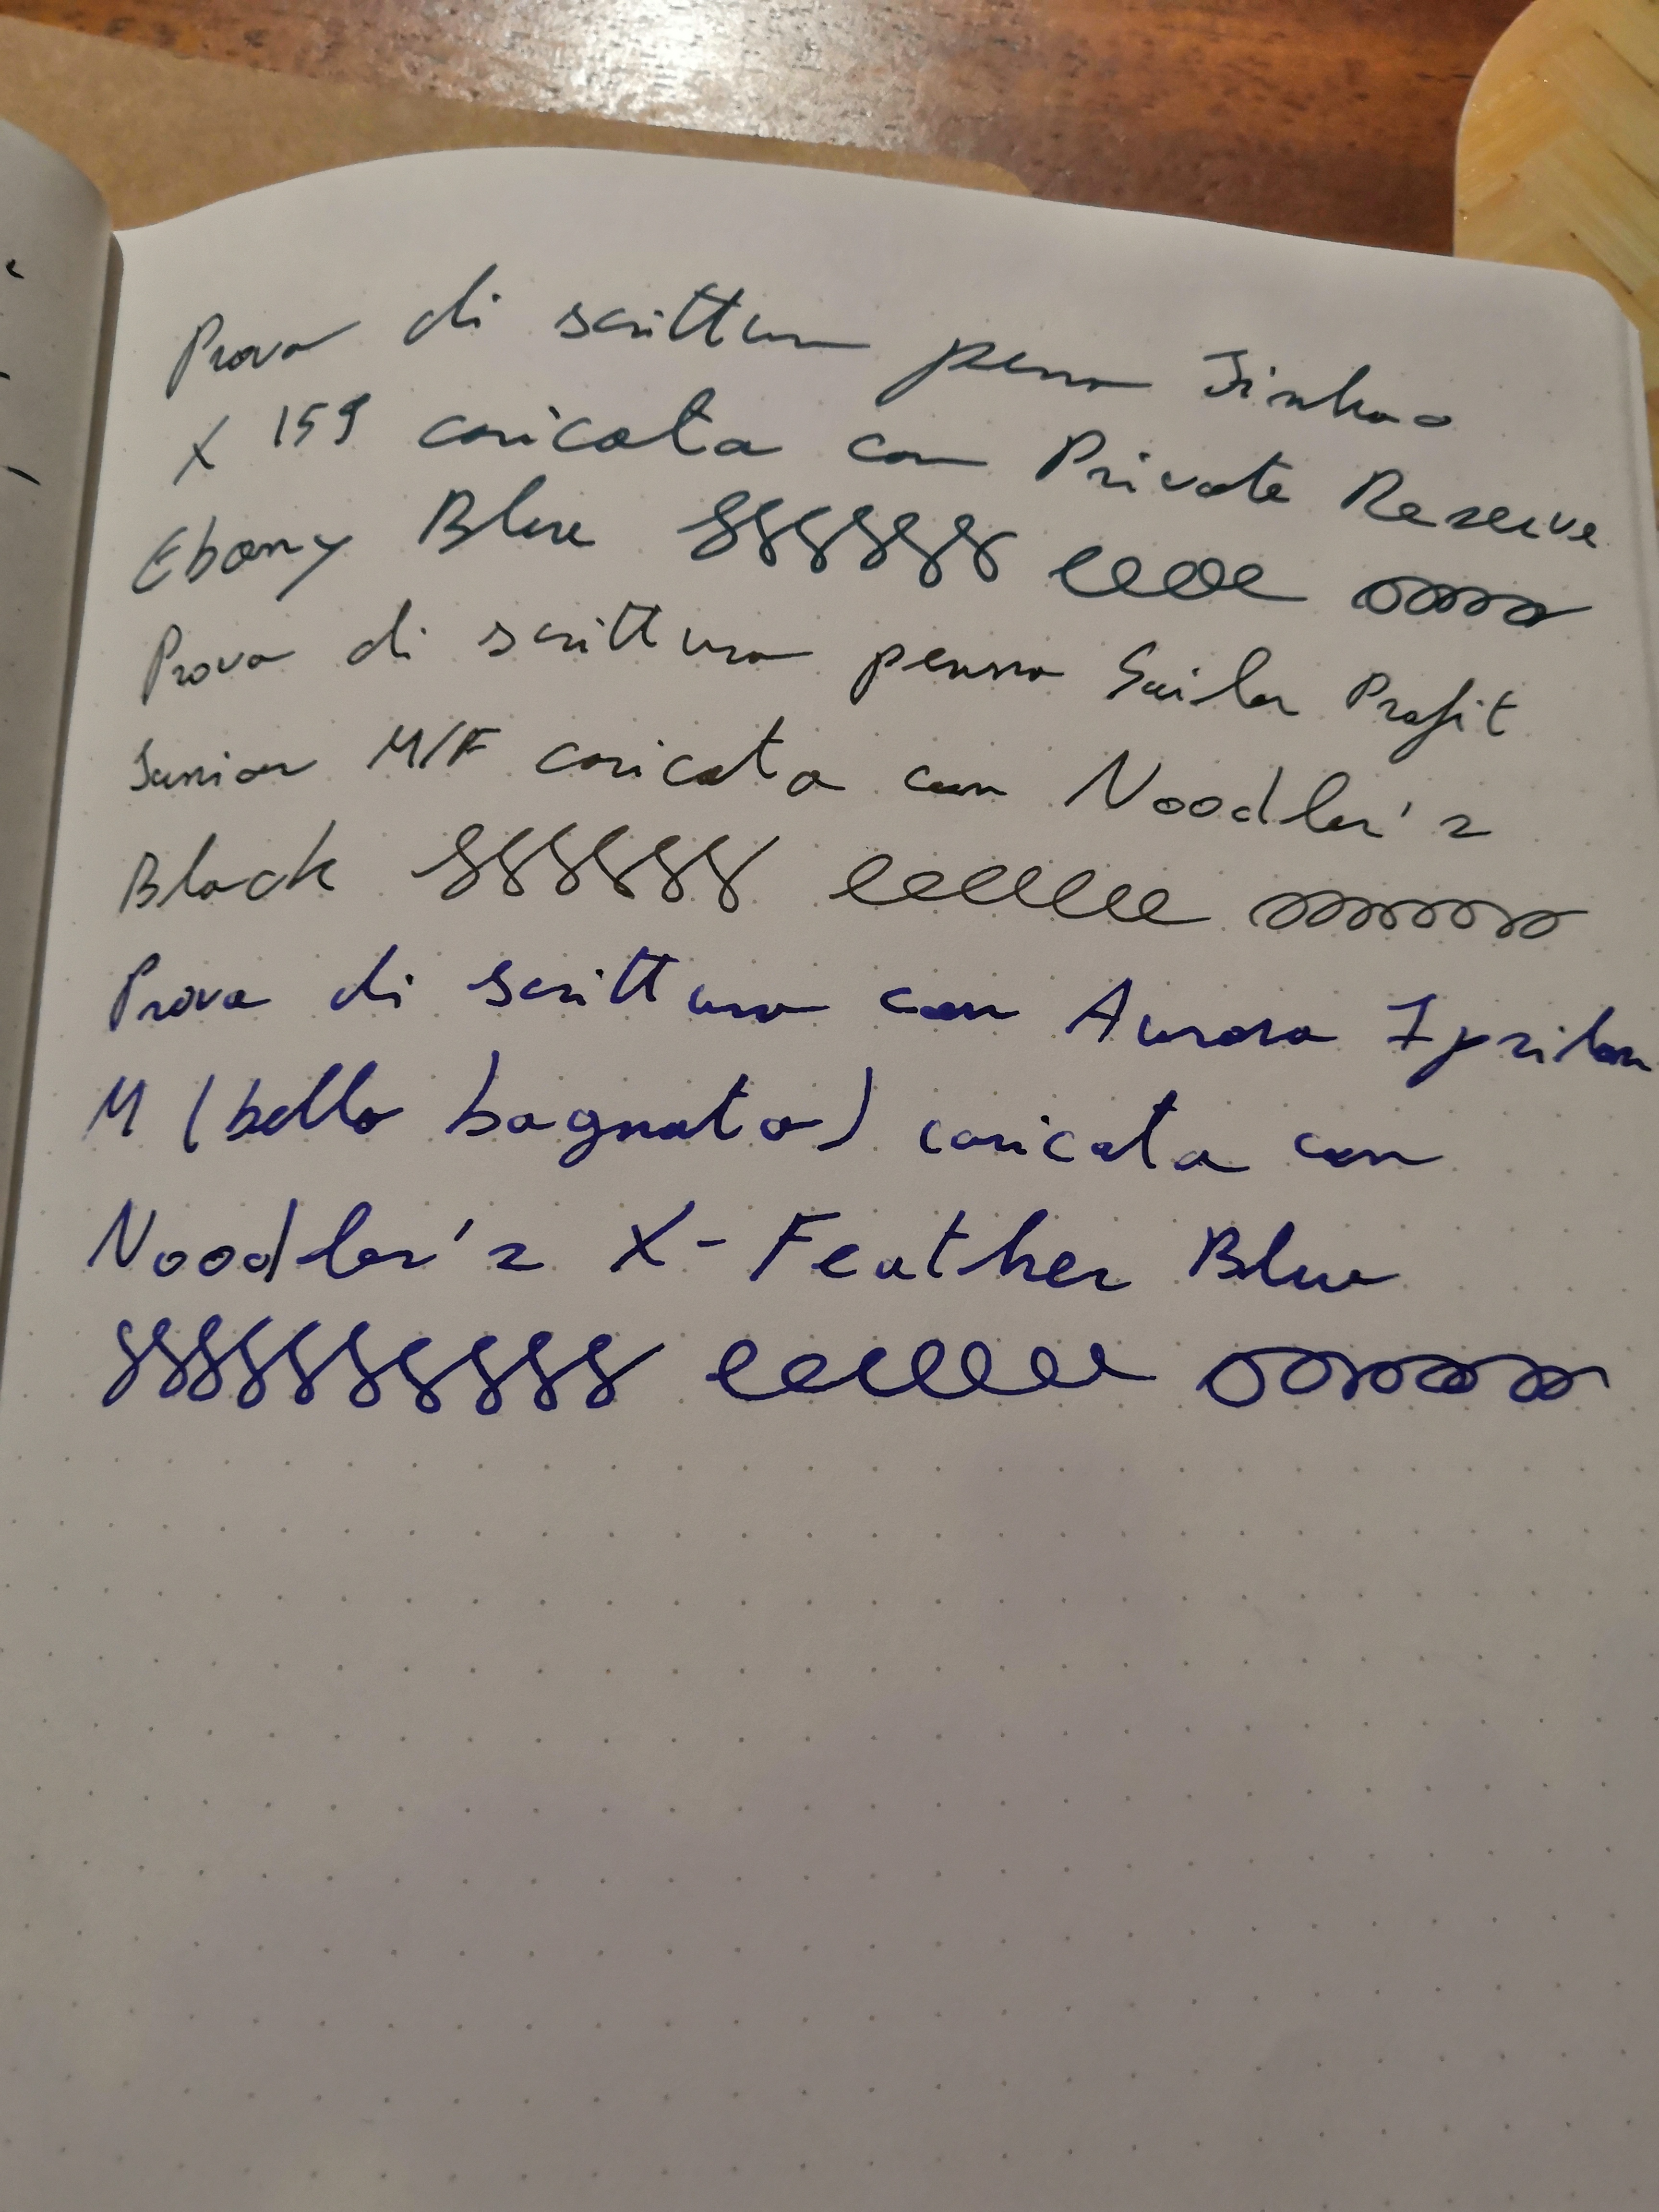 Prova di scrittura penna Jinhao
X 159 caricata con Private Reserve
Ebony Blue
Prova di scrittura penna Sailor Profit
Junior M/F caricata con Noodler's
Black
Prova di scrittura con Aurora Ipsilon
M (bello bagnato) caricata con
Noodler's X-Feather Blue